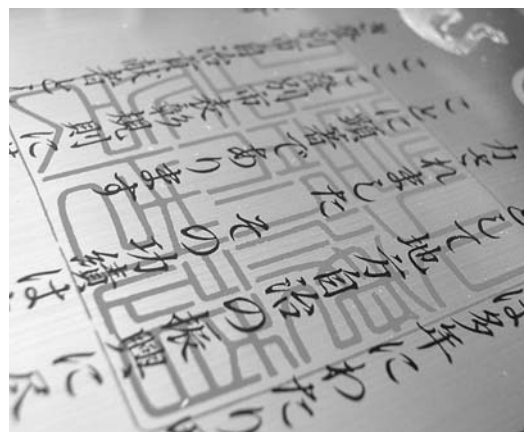 は多年にわたり
として地方自治の振興に尽
力されました その功績は
ことに顕著であります
ここに登別市表彰規則に
き登別市自治貢献者と